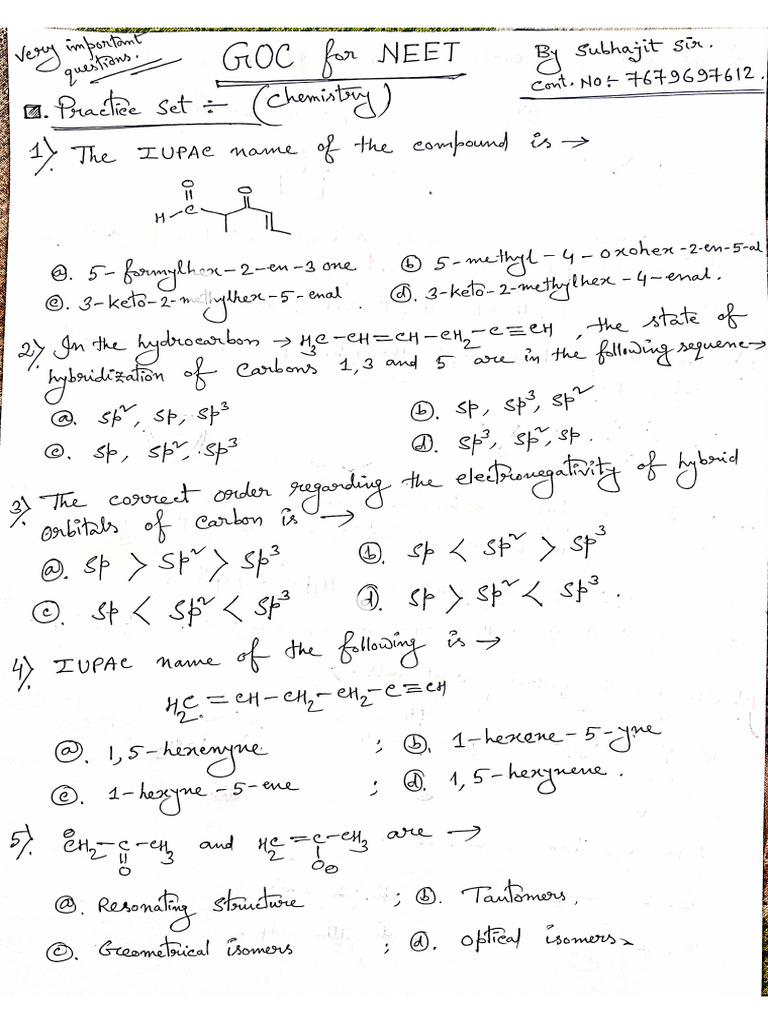 Very important questions.
GOC for NEET
(Chemistry)
By Subhajit Sir.
Cont. No:- 7679697612.
Practice Set :-
1) The IUPAC name of the compound is →
H-C
O
O
a. 5-formylhex-2-en-3 one
b. 5-methyl-4-oxohex-2-en-5-al
c. 3-keto-2-methylhex-5-enal
d. 3-keto-2-methylhex-4-enal.
2) In the hydrocarbon → H3C-CH=CH-CH2-C≡CH, the state of
hybridization of Carbons 1,3 and 5 are in the following sequence→
a. Sp², Sp, Sp³
b. Sp, Sp³, Sp²
c. Sp, Sp², Sp³
d. Sp³, Sp², Sp.
3) The correct order regarding the electronegativity of hybrid
orbitals of carbon is →
a. Sp > Sp² > Sp³
b. Sp < Sp² > Sp³
c. Sp < Sp² < Sp³
d. Sp > Sp² < Sp³.
4) IUPAC name of the following is →
H2C=CH-CH2-CH2-C≡CH
a. 1,5-hexenyne. ;
b. 1-hexene-5-yne
c. 1-hexyne-5-ene ;
d. 1,5-hexynene.
5) ⊖CH2-C-CH3 and H2C=C-CH3 are →
O
O⊖
a. Resonating Structure ;
b. Tautomers,
c. Geometrical isomers ;
d. Optical isomers